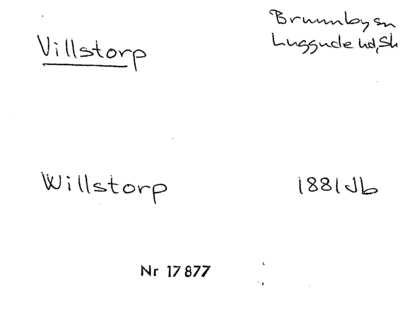 Villstorp
Brunnby sn
Luggude hd, Sk
Willstorp
1881 Jb
Nr 17877